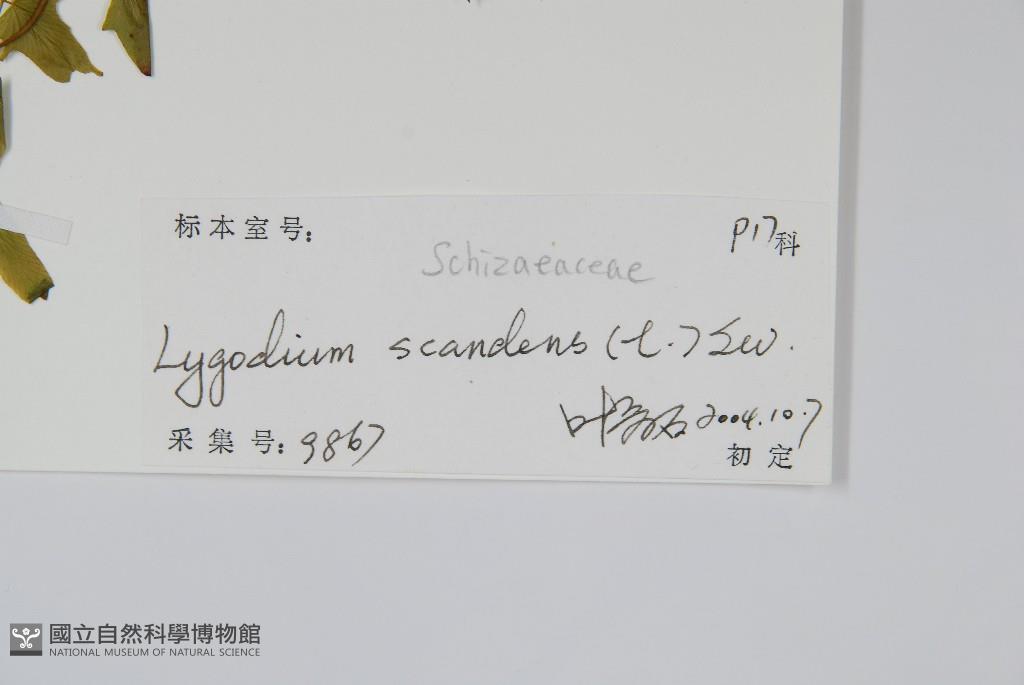 标本室号:
P17科
Schizaeaceae
Lygodium scandens (L.) Sw.
叶 2004.10.7
采集号: 9867
初定
國立自然科學博物館
NATIONAL MUSEUM OF NATURAL SCIENCE